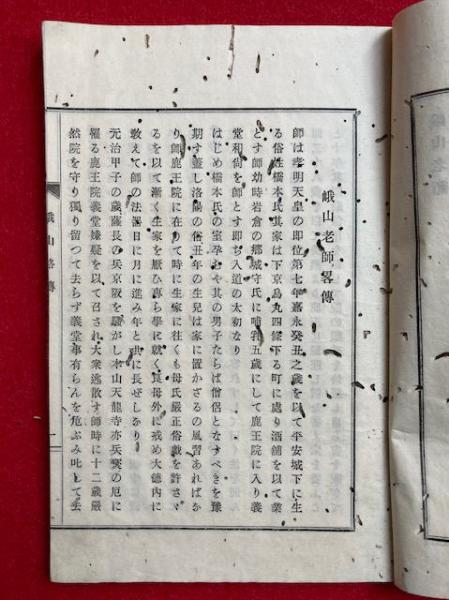 峨山老師畧傳
師は孝明天皇の即位第七年嘉永癸丑之歳を以て平安城下に生
る俗姓橋本氏其家は下京烏丸四條下る町に處り酒舗を以て業
とす師幼時岩倉の郷城守氏に哺育五歳にして鹿王院に入り義
堂和尚を師とす即ち入道の太初なり
はじめ橋本氏の室孕むや其の男子たらば僧侶となすべきを豫
期す蓋し洛陽の俗丑年の生兒は家に置かざるの風習あればな
り師鹿王院に在りて時に生家に往くも母氏嚴正俗戯を許さ
るを以て漸く生家を厭ひ專ら學に就く其母外に戒め大徳内に
敎えて師の法日に月に進み年と共に長ぜしなり
元治甲子の歳薩長の兵京畿を騷がし本山天龍寺亦兵燹の厄に
罹る鹿王院義堂嫌疑を以て召され大衆逃散す師時に十二歳嚴
然院を守り獨り留つて去らず義堂事有らんを危ぶみ叱して去
峨山畧傳
一